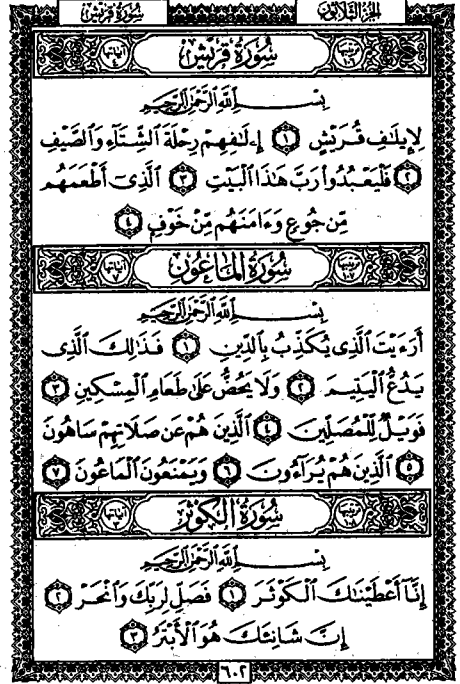 سُورَةُ قُرَيْشٍ الجُزْءُ الثَّلَاثُونَ
سُورَةُ قُرَيْشٍ
بِسْمِ اللَّهِ الرَّحْمَٰنِ الرَّحِيمِ
لِإِيلَافِ قُرَيْشٍ ١ إِۦلَافِهِمْ رِحْلَةَ الشِّتَاءِ وَالصَّيْفِ
٢ فَلْيَعْبُدُوا رَبَّ هَٰذَا الْبَيْتِ ٣ الَّذِي أَطْعَمَهُم
مِّن جُوعٍ وَءَامَنَهُم مِّنْ خَوْفٍ ٤
سُورَةُ المَاعُونِ
بِسْمِ اللَّهِ الرَّحْمَٰنِ الرَّحِيمِ
أَرَءَيْتَ الَّذِي يُكَذِّبُ بِالدِّينِ ١ فَذَٰلِكَ الَّذِي
يَدُعُّ الْيَتِيمَ ٢ وَلَا يَحُضُّ عَلَىٰ طَعَامِ الْمِسْكِينِ ٣
فَوَيْلٌ لِّلْمُصَلِّينَ ٤ الَّذِينَ هُمْ عَن صَلَاتِهِمْ سَاهُونَ
٥ الَّذِينَ هُمْ يُرَاءُونَ ٦ وَيَمْنَعُونَ الْمَاعُونَ ٧
سُورَةُ الكَوْثَرِ
بِسْمِ اللَّهِ الرَّحْمَٰنِ الرَّحِيمِ
إِنَّا أَعْطَيْنَاكَ الْكَوْثَرَ ١ فَصَلِّ لِرَبِّكَ وَانْحَرْ ٢
إِنَّ شَانِئَكَ هُوَ الْأَبْتَرُ ٣
٦٠٢